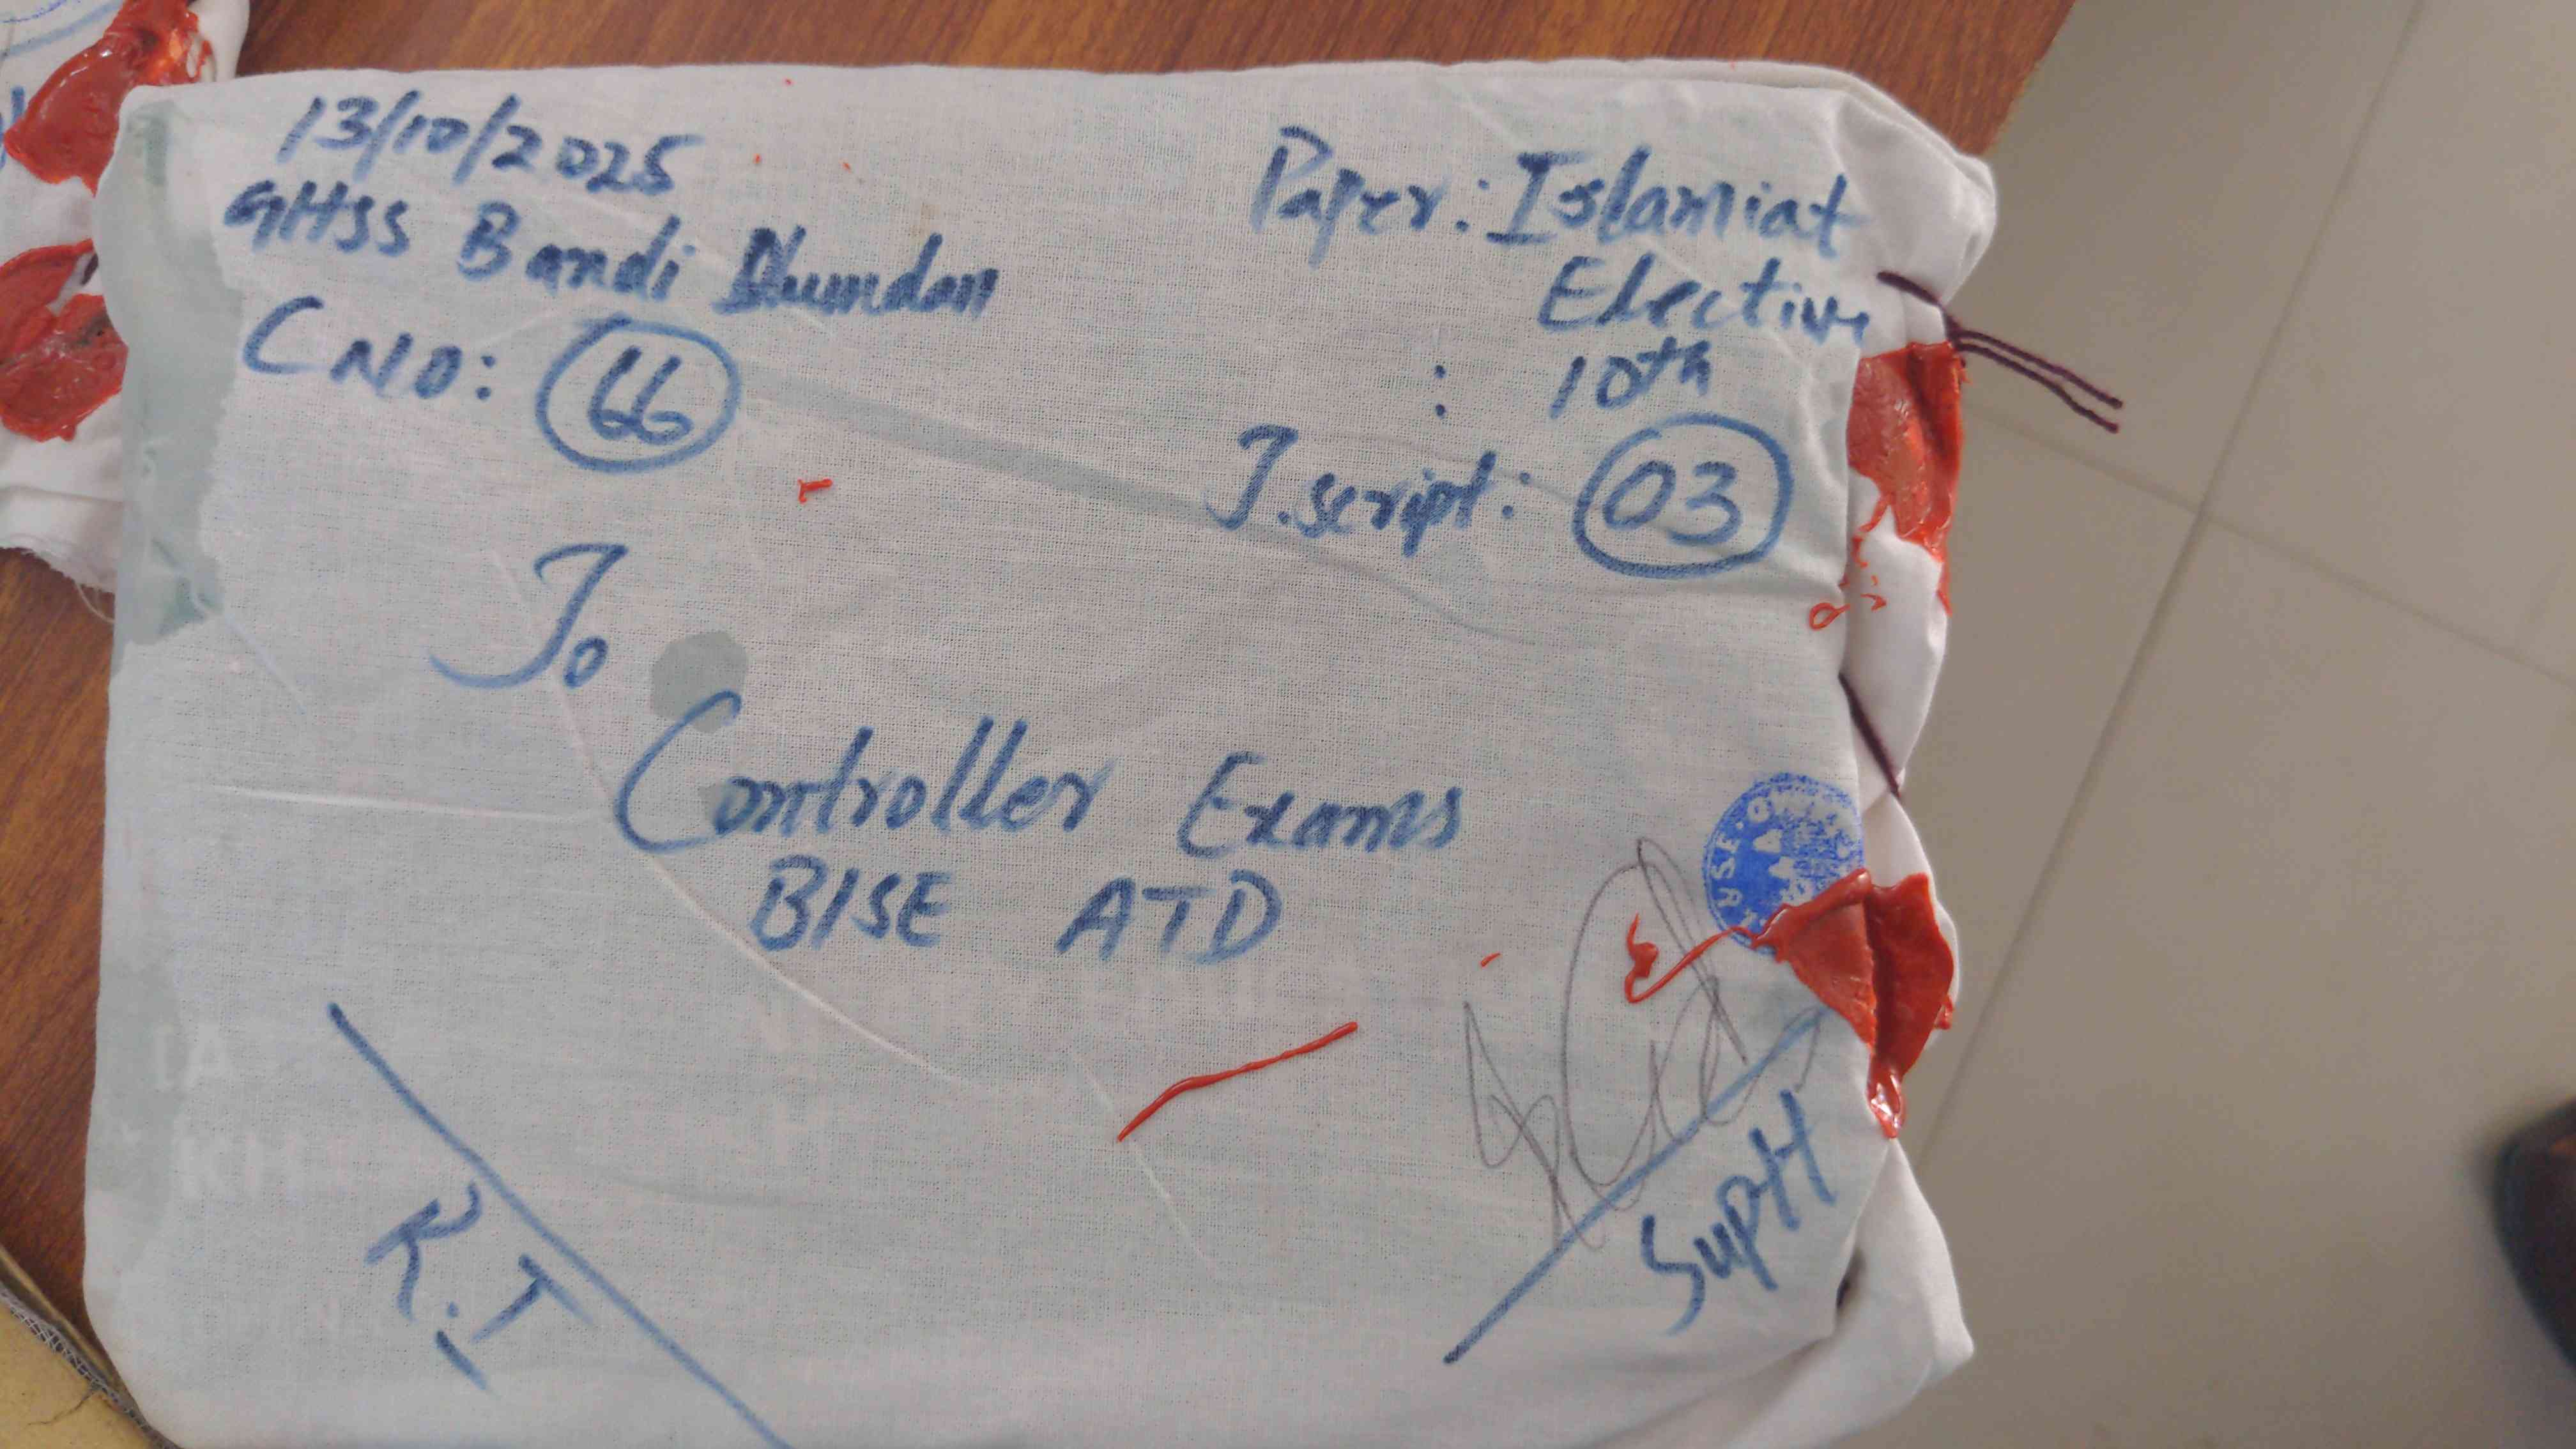 13/10/2025
GHSS Bandi Dhundan
C NO: 66
Paper: Islamiat
Elective
: 10th
T.script: 03
To
Controller Exams
BISE ATD
R.I
SupH